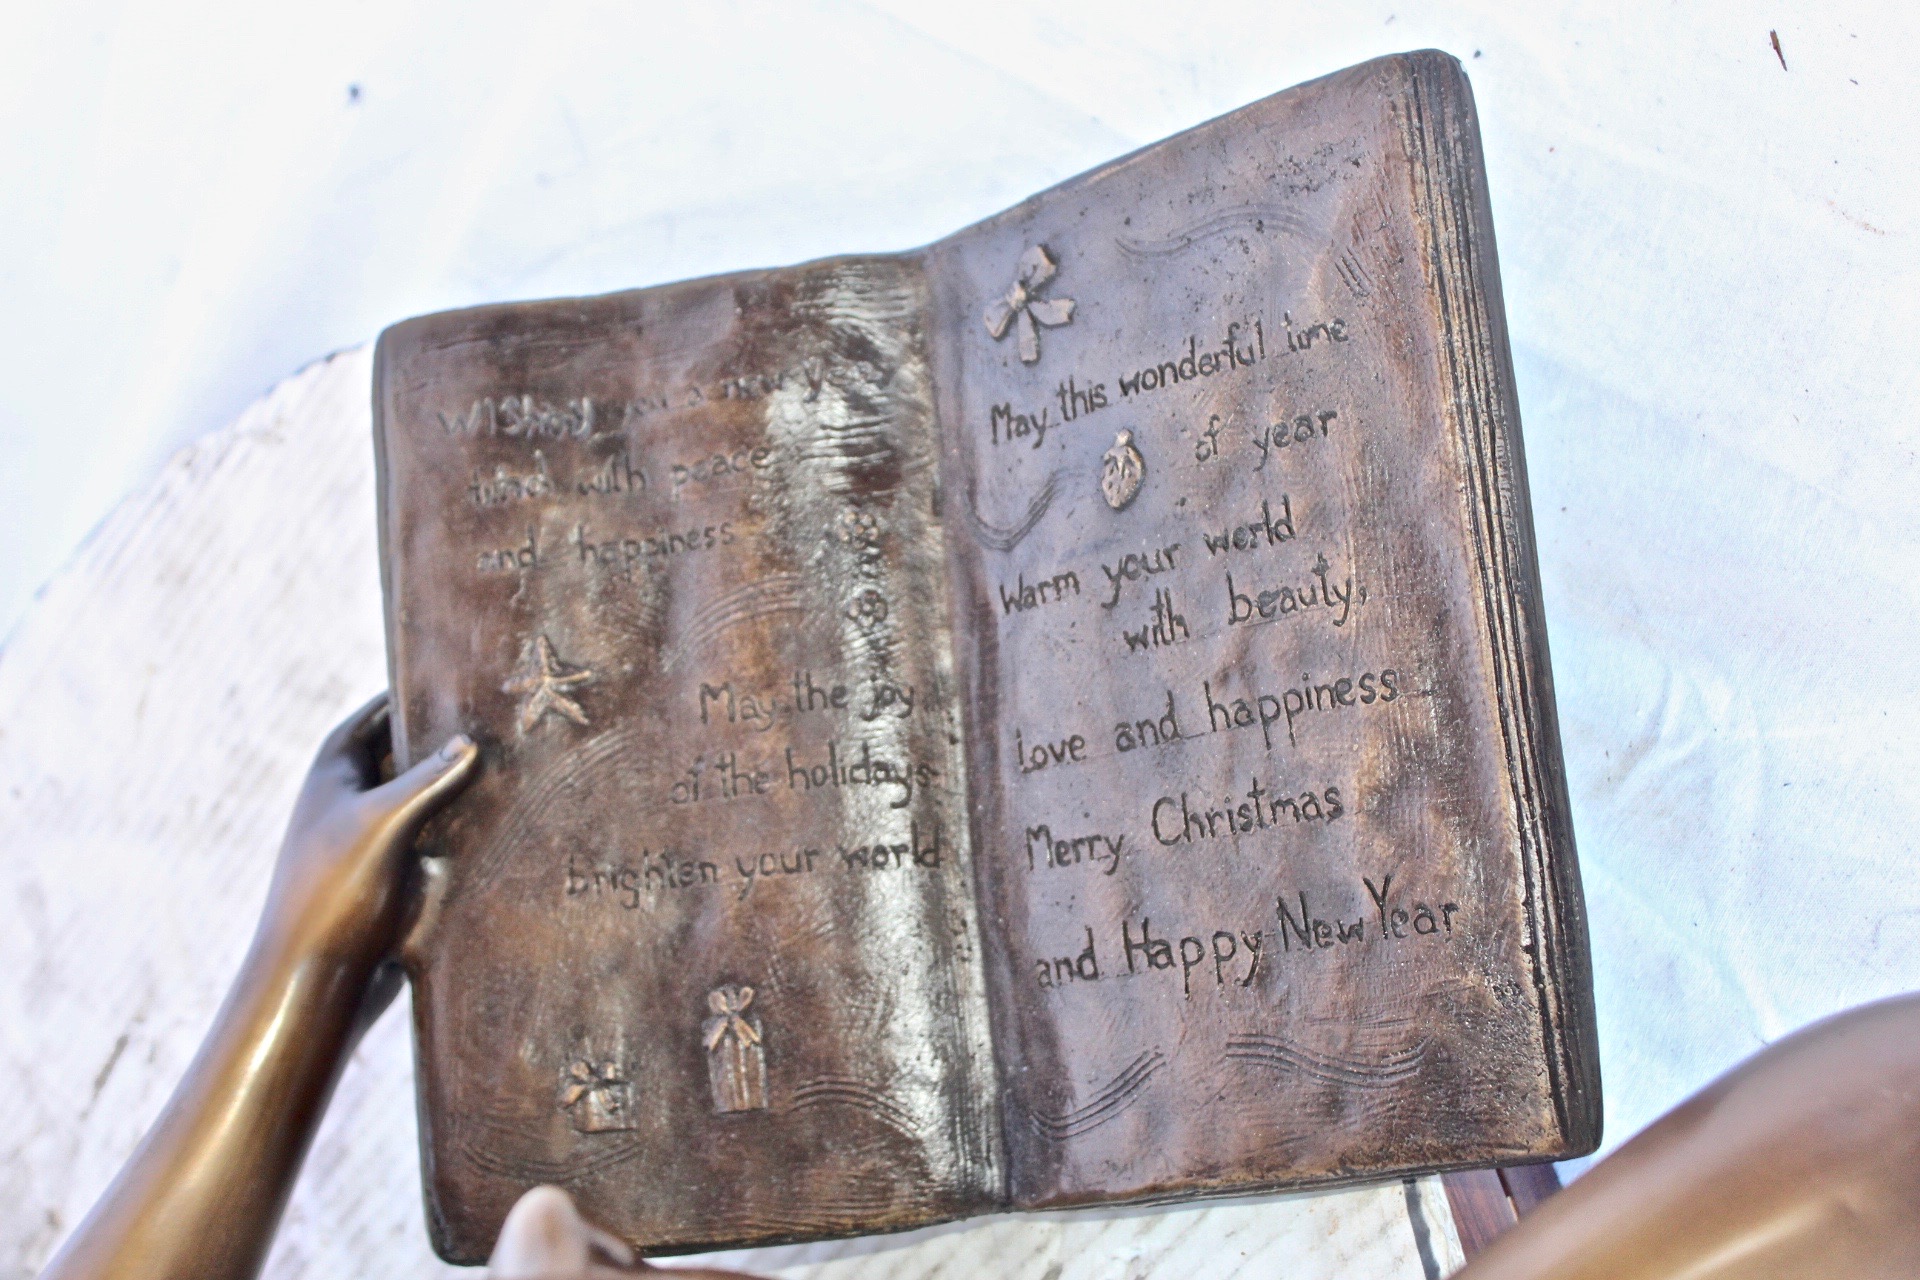 WIShing you a new year
with peace
and happiness
May the joy
of the holidays
brighten your world
May this wonderful time
of year
Warm your world
with beauty,
love and happiness
Merry Christmas
and Happy New Year